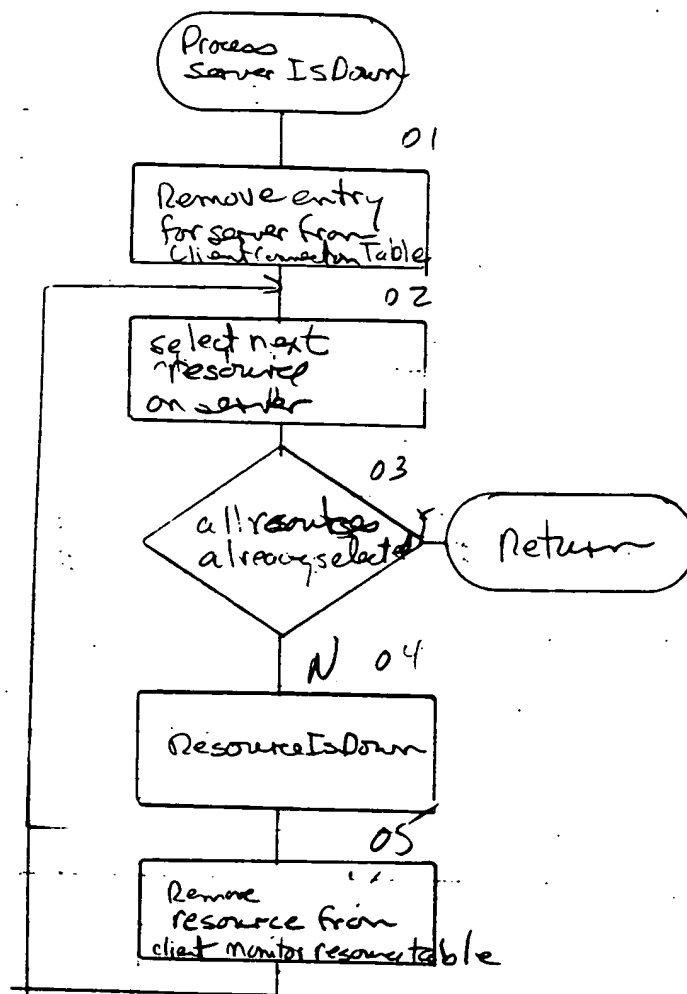 Process
server IsDown
01
Remove entry
for server from
Client Connection Table
02
select next
resource
on server
03
all resources
already selected
Y
Return
N 04
ResourceIsDown
05
Remove
resource from
client monitor resource table